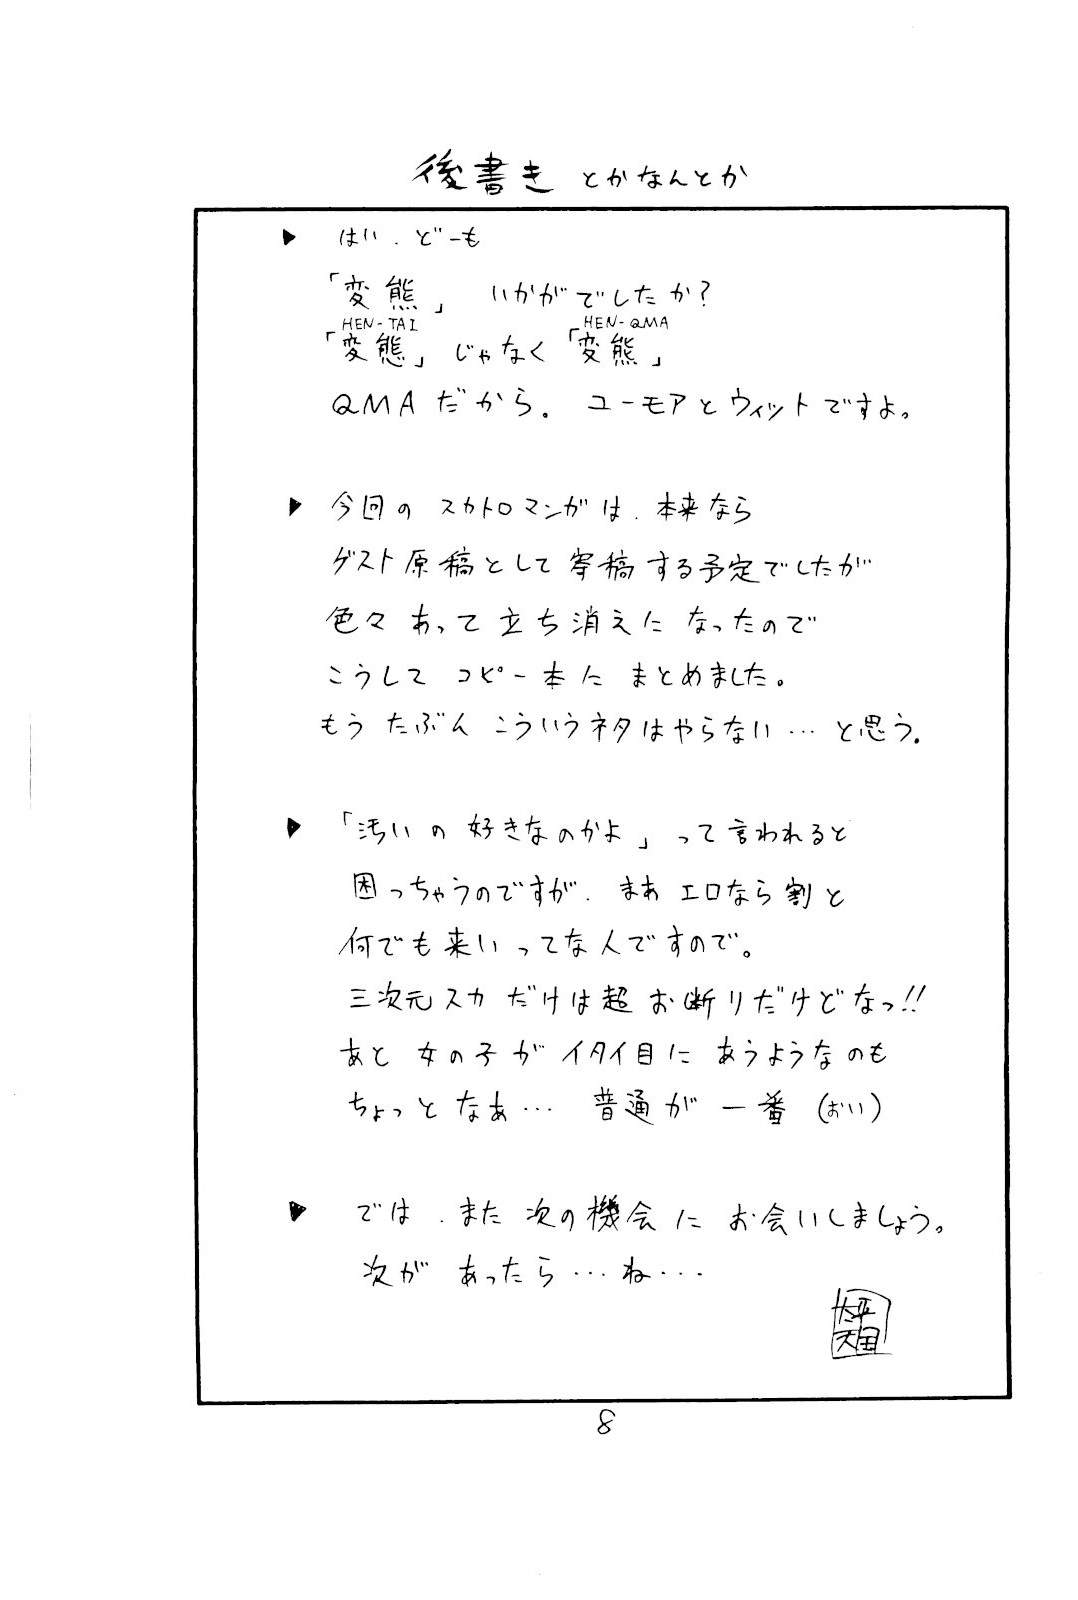 後書き とかなんとか
▶ はい、どーも
「変熊」 いかがでしたか?
HEN-TAI HEN-QMA
「変態」じゃなく「変熊」
QMAだから。ユーモアとウィットですよ。
▶ 今回の スカトロマンガは、本来なら
ゲスト原稿として寄稿する予定でしたが
色々 あって 立ち消えに なったので
こうして コピー本に まとめました。
もう たぶん こういうネタはやらない…と思う。
▶ 「汚いの 好きなのかよ」って言われると
困っちゃうのですが、まあ エロなら割と
何でも来いってな人ですので。
三次元スカ だけは超 お断りだけどなっ!!
あと 女の子が イタイ目に あうようなのも
ちょっと なあ… 普通が 一番 (おい)
▶ では、また 次の機会に お会いしましょう。
次が あったら…ね…
太平
天国
8